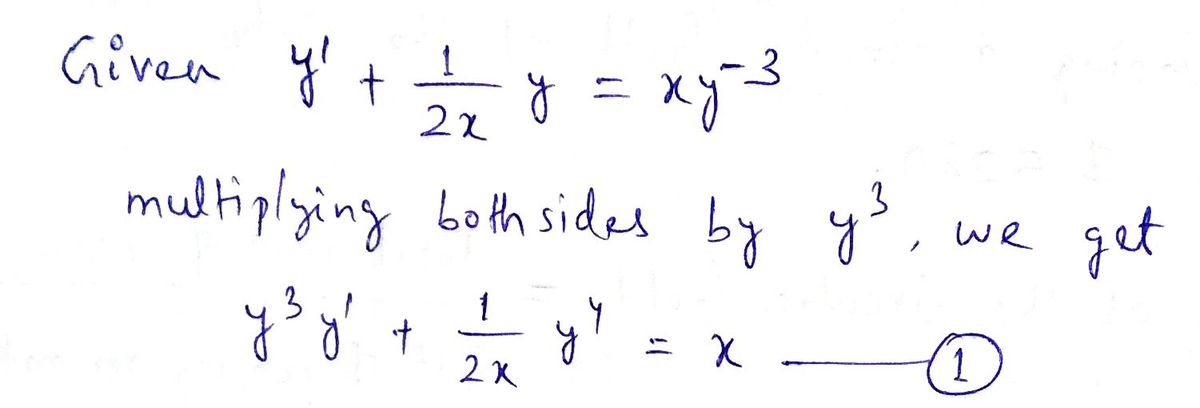 Given y' + 1/2x y = xy^-3
multiplying both sides by y^3, we get
y^3 y' + 1/2x y^4 = x —— ①